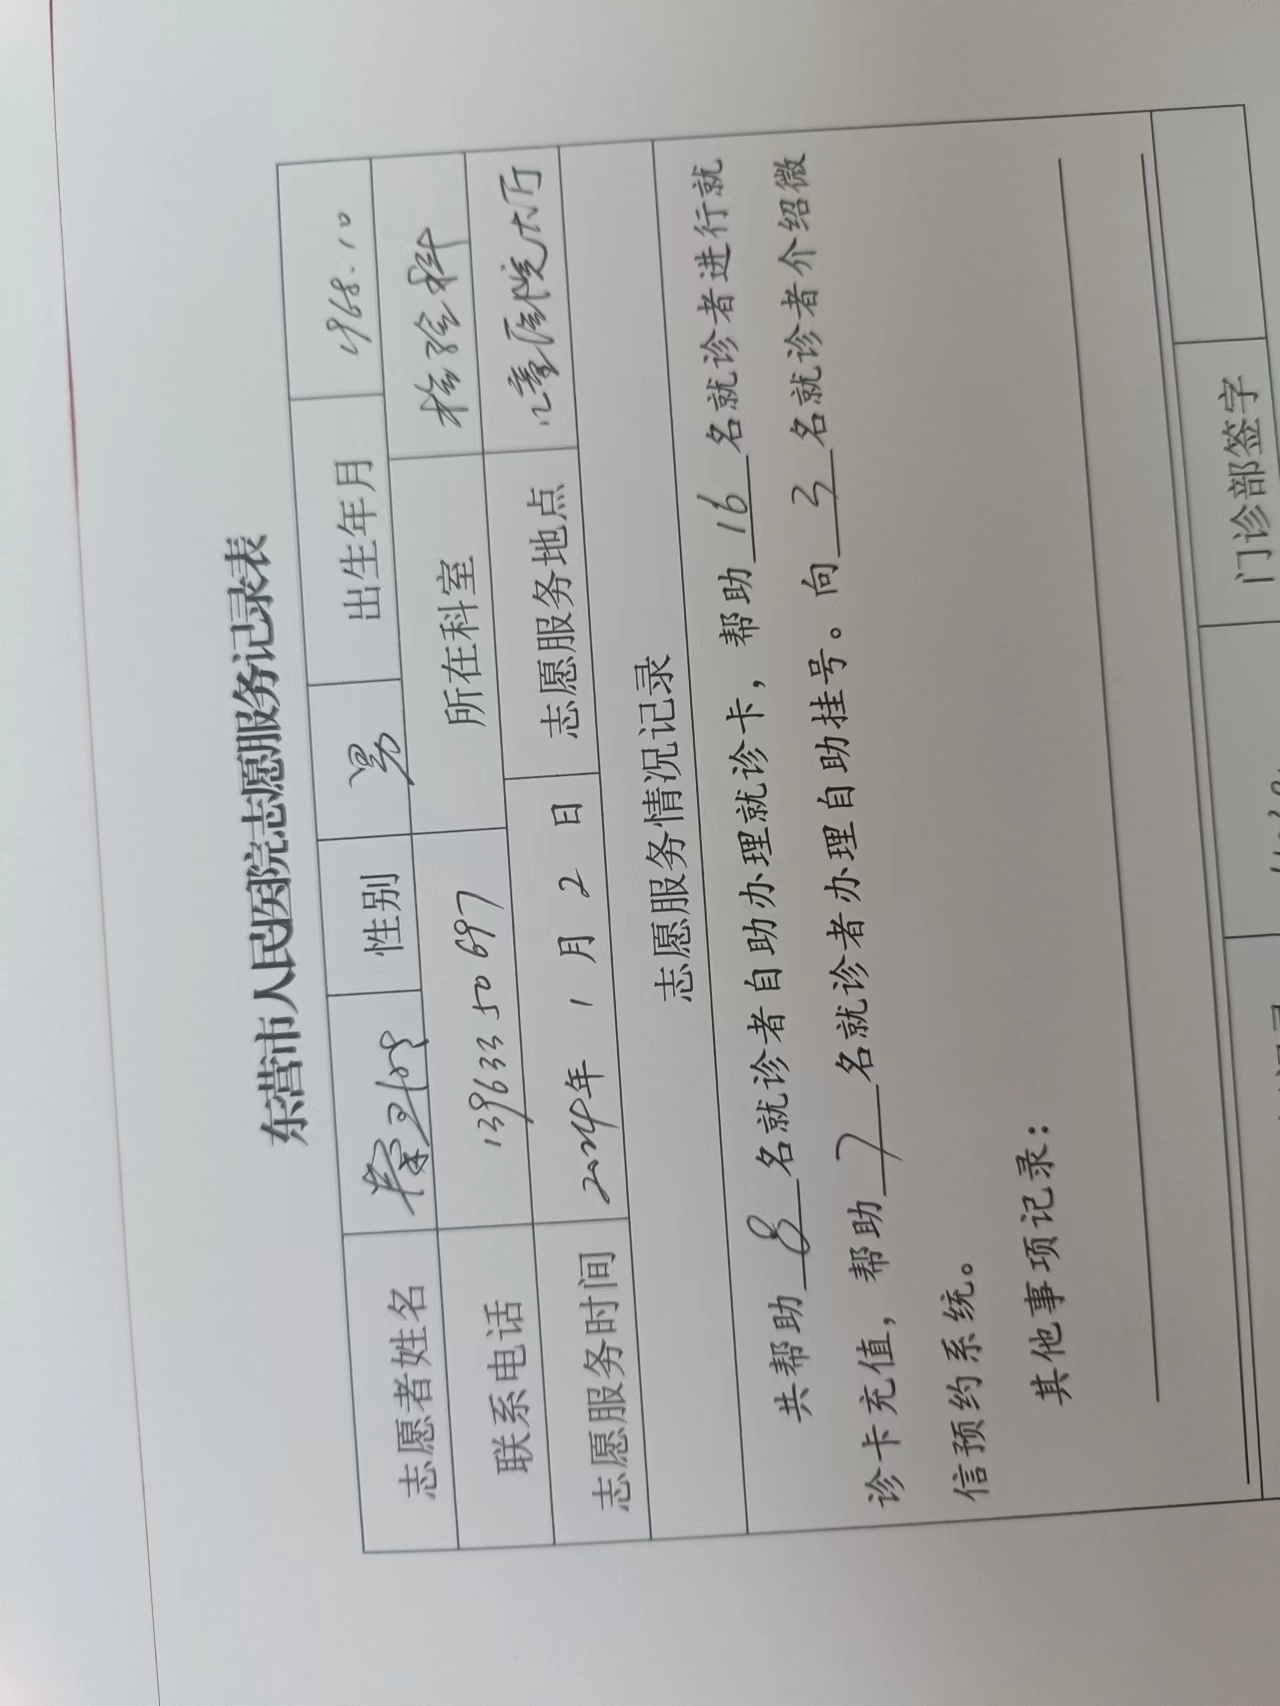 东营市人民医院志愿服务记录表
志愿者姓名 性别 男 出生年月 1968.10
联系电话 13963350697 所在科室 检验科
志愿服务时间 2024年 1 月 2 日 志愿服务地点 儿童医院大厅
志愿服务情况记录
共帮助 8 名就诊者自助办理就诊卡，帮助 16 名就诊者进行就
诊卡充值，帮助 7 名就诊者办理自助挂号。向 3 名就诊者介绍微
信预约系统。
其他事项记录：
门诊部签字